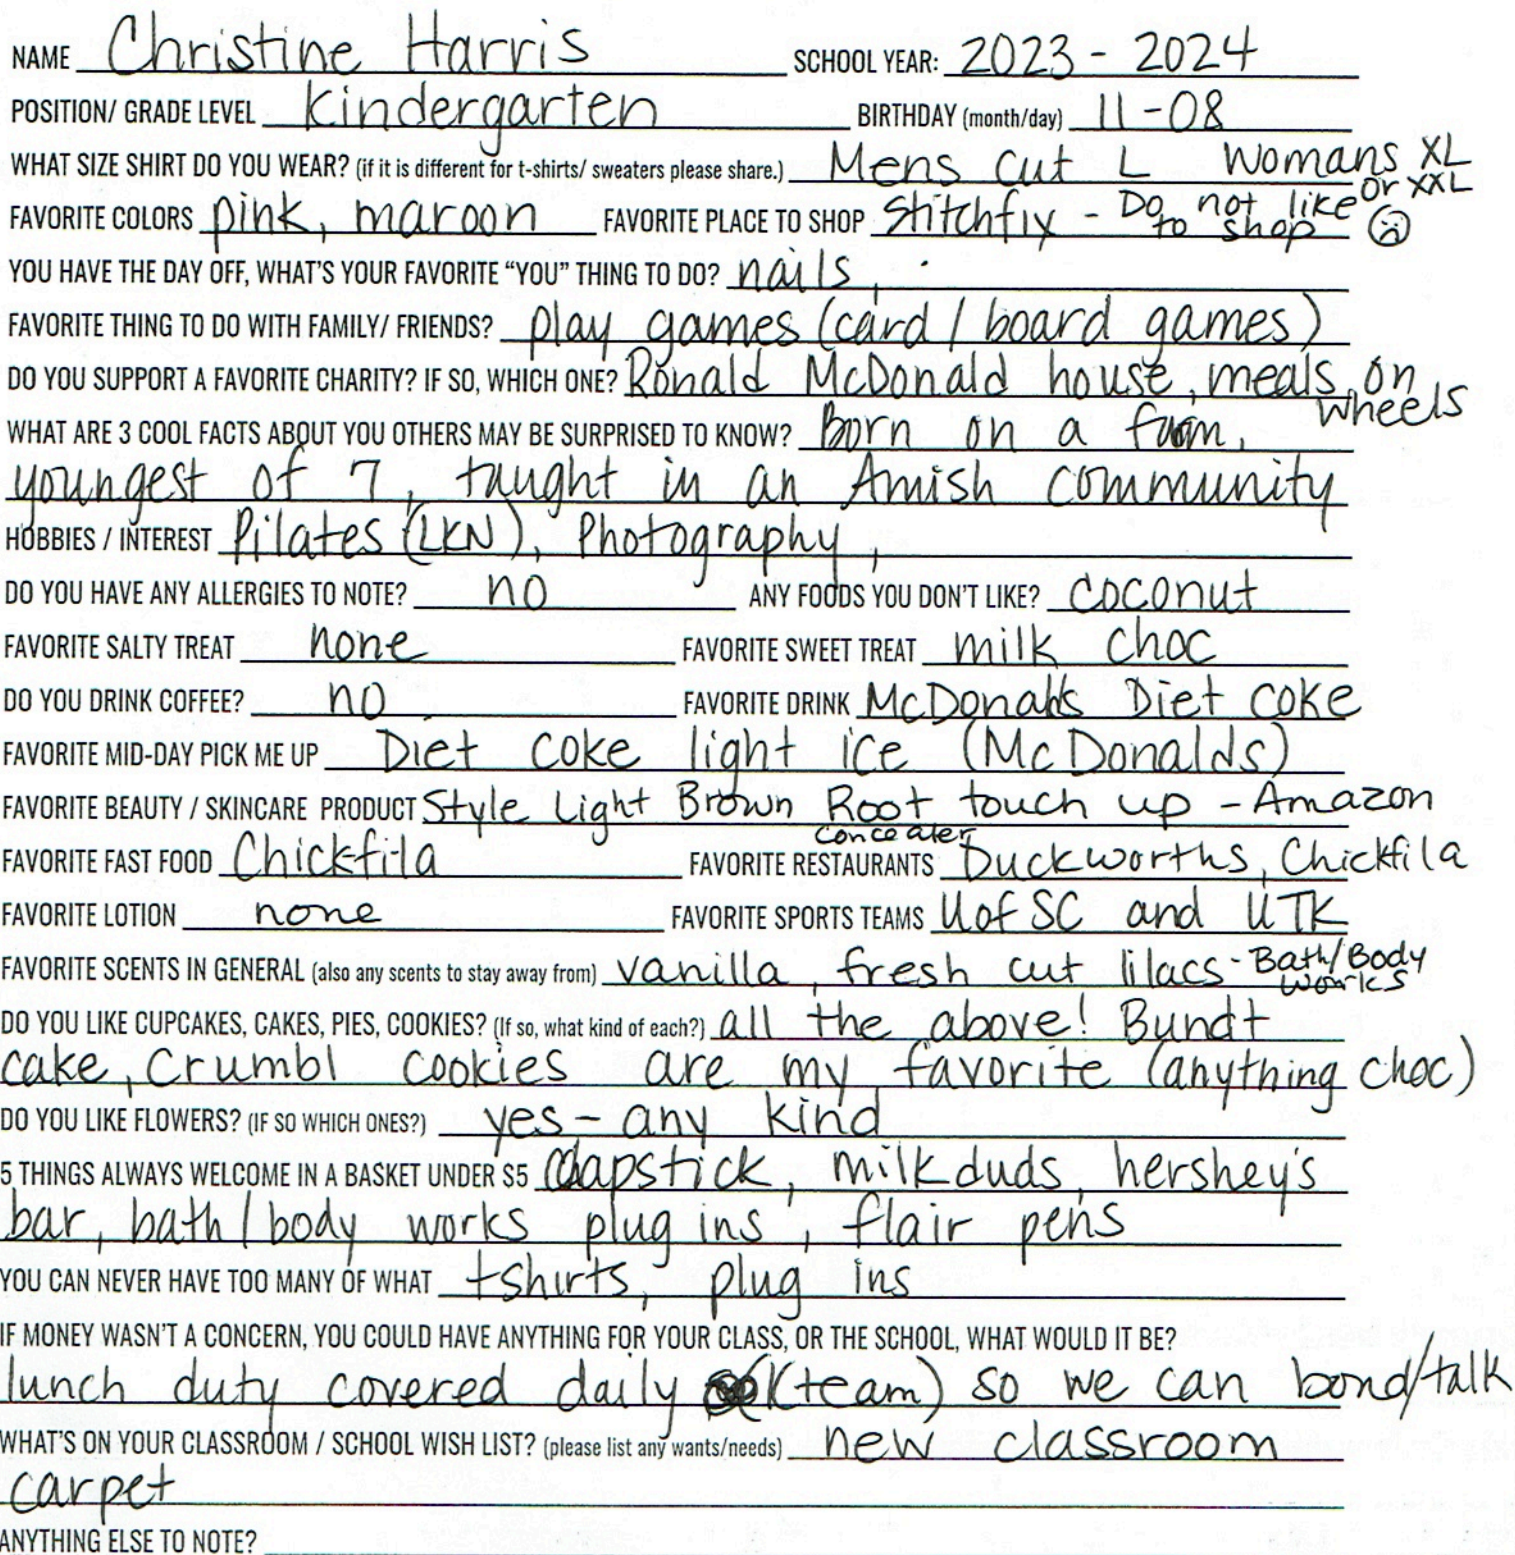 NAME Christine Harris SCHOOL YEAR: 2023 - 2024
POSITION/ GRADE LEVEL Kindergarten BIRTHDAY (month/day) 11-08
WHAT SIZE SHIRT DO YOU WEAR? (if it is different for t-shirts/ sweaters please share.) Mens cut L Womans XL or XXL
FAVORITE COLORS pink, maroon FAVORITE PLACE TO SHOP Stitchfix - Do not like to shop
YOU HAVE THE DAY OFF, WHAT'S YOUR FAVORITE "YOU" THING TO DO? nails,
FAVORITE THING TO DO WITH FAMILY/ FRIENDS? play games (card / board games)
DO YOU SUPPORT A FAVORITE CHARITY? IF SO, WHICH ONE? Ronald McDonald house, meals on wheels
WHAT ARE 3 COOL FACTS ABOUT YOU OTHERS MAY BE SURPRISED TO KNOW? Born on a farm,
youngest of 7, taught in an Amish community
HOBBIES / INTEREST Pilates (LKN), Photography,
DO YOU HAVE ANY ALLERGIES TO NOTE? no ANY FOODS YOU DON'T LIKE? coconut
FAVORITE SALTY TREAT none FAVORITE SWEET TREAT milk choc
DO YOU DRINK COFFEE? no FAVORITE DRINK McDonalds Diet coke
FAVORITE MID-DAY PICK ME UP Diet coke light ice (McDonalds)
FAVORITE BEAUTY / SKINCARE PRODUCT Style Light Brown Root touch up - Amazon
concealer
FAVORITE FAST FOOD Chickfila FAVORITE RESTAURANTS Duckworths, Chickfila
FAVORITE LOTION none FAVORITE SPORTS TEAMS UofSC and UTK
FAVORITE SCENTS IN GENERAL (also any scents to stay away from) vanilla, fresh cut lilacs - Bath/Body works
DO YOU LIKE CUPCAKES, CAKES, PIES, COOKIES? (If so, what kind of each?) all the above! Bundt
cake, Crumbl cookies are my favorite (anything choc)
DO YOU LIKE FLOWERS? (IF SO WHICH ONES?) yes - any kind
5 THINGS ALWAYS WELCOME IN A BASKET UNDER $5 chapstick, milkduds, hershey's
bar, bath/body works plug ins, flair pens
YOU CAN NEVER HAVE TOO MANY OF WHAT tshirts, plug ins
IF MONEY WASN'T A CONCERN, YOU COULD HAVE ANYTHING FOR YOUR CLASS, OR THE SCHOOL, WHAT WOULD IT BE?
lunch duty covered daily (K team) so we can bond/talk
WHAT'S ON YOUR CLASSROOM / SCHOOL WISH LIST? (please list any wants/needs) new classroom
carpet
ANYTHING ELSE TO NOTE?